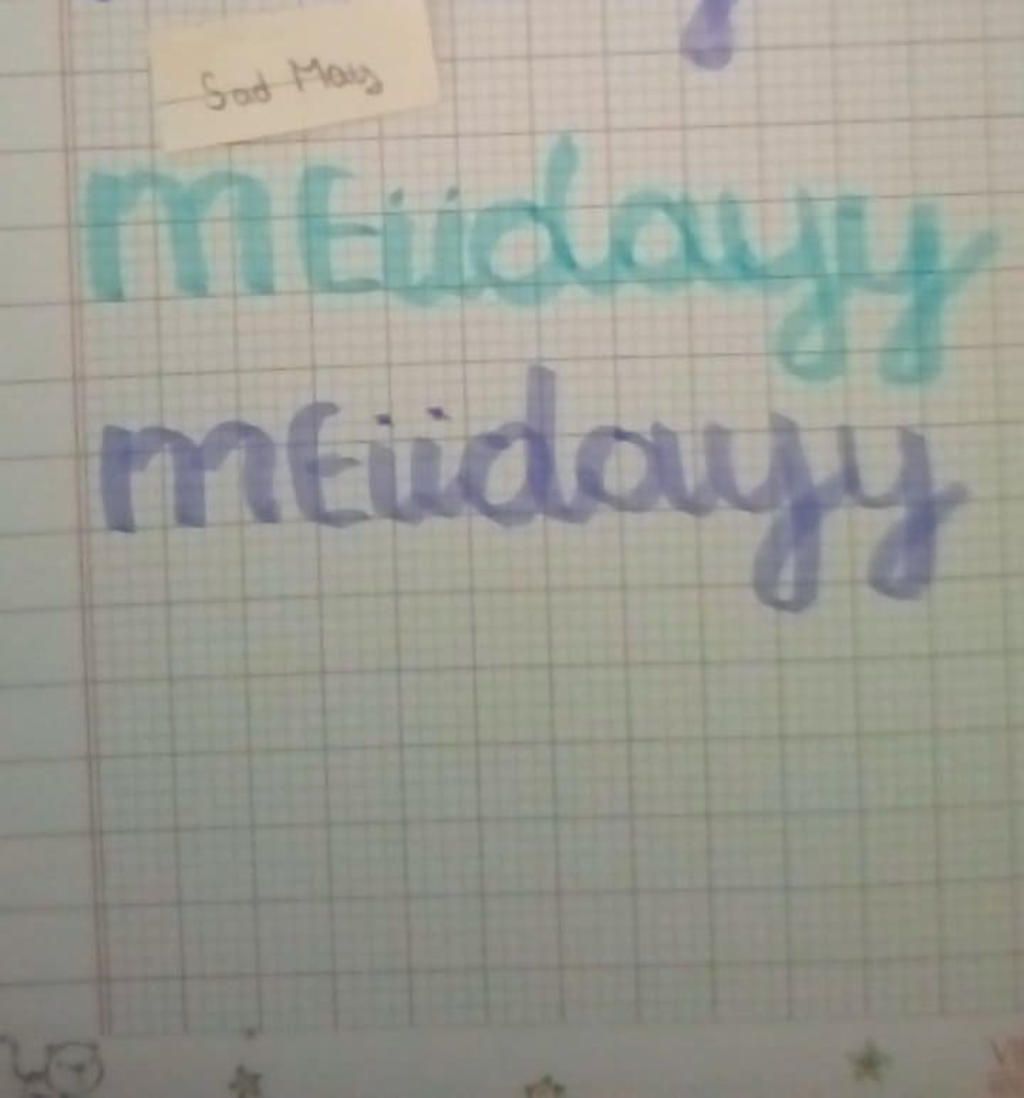 Sad May
mEiidayy
mEiidayy